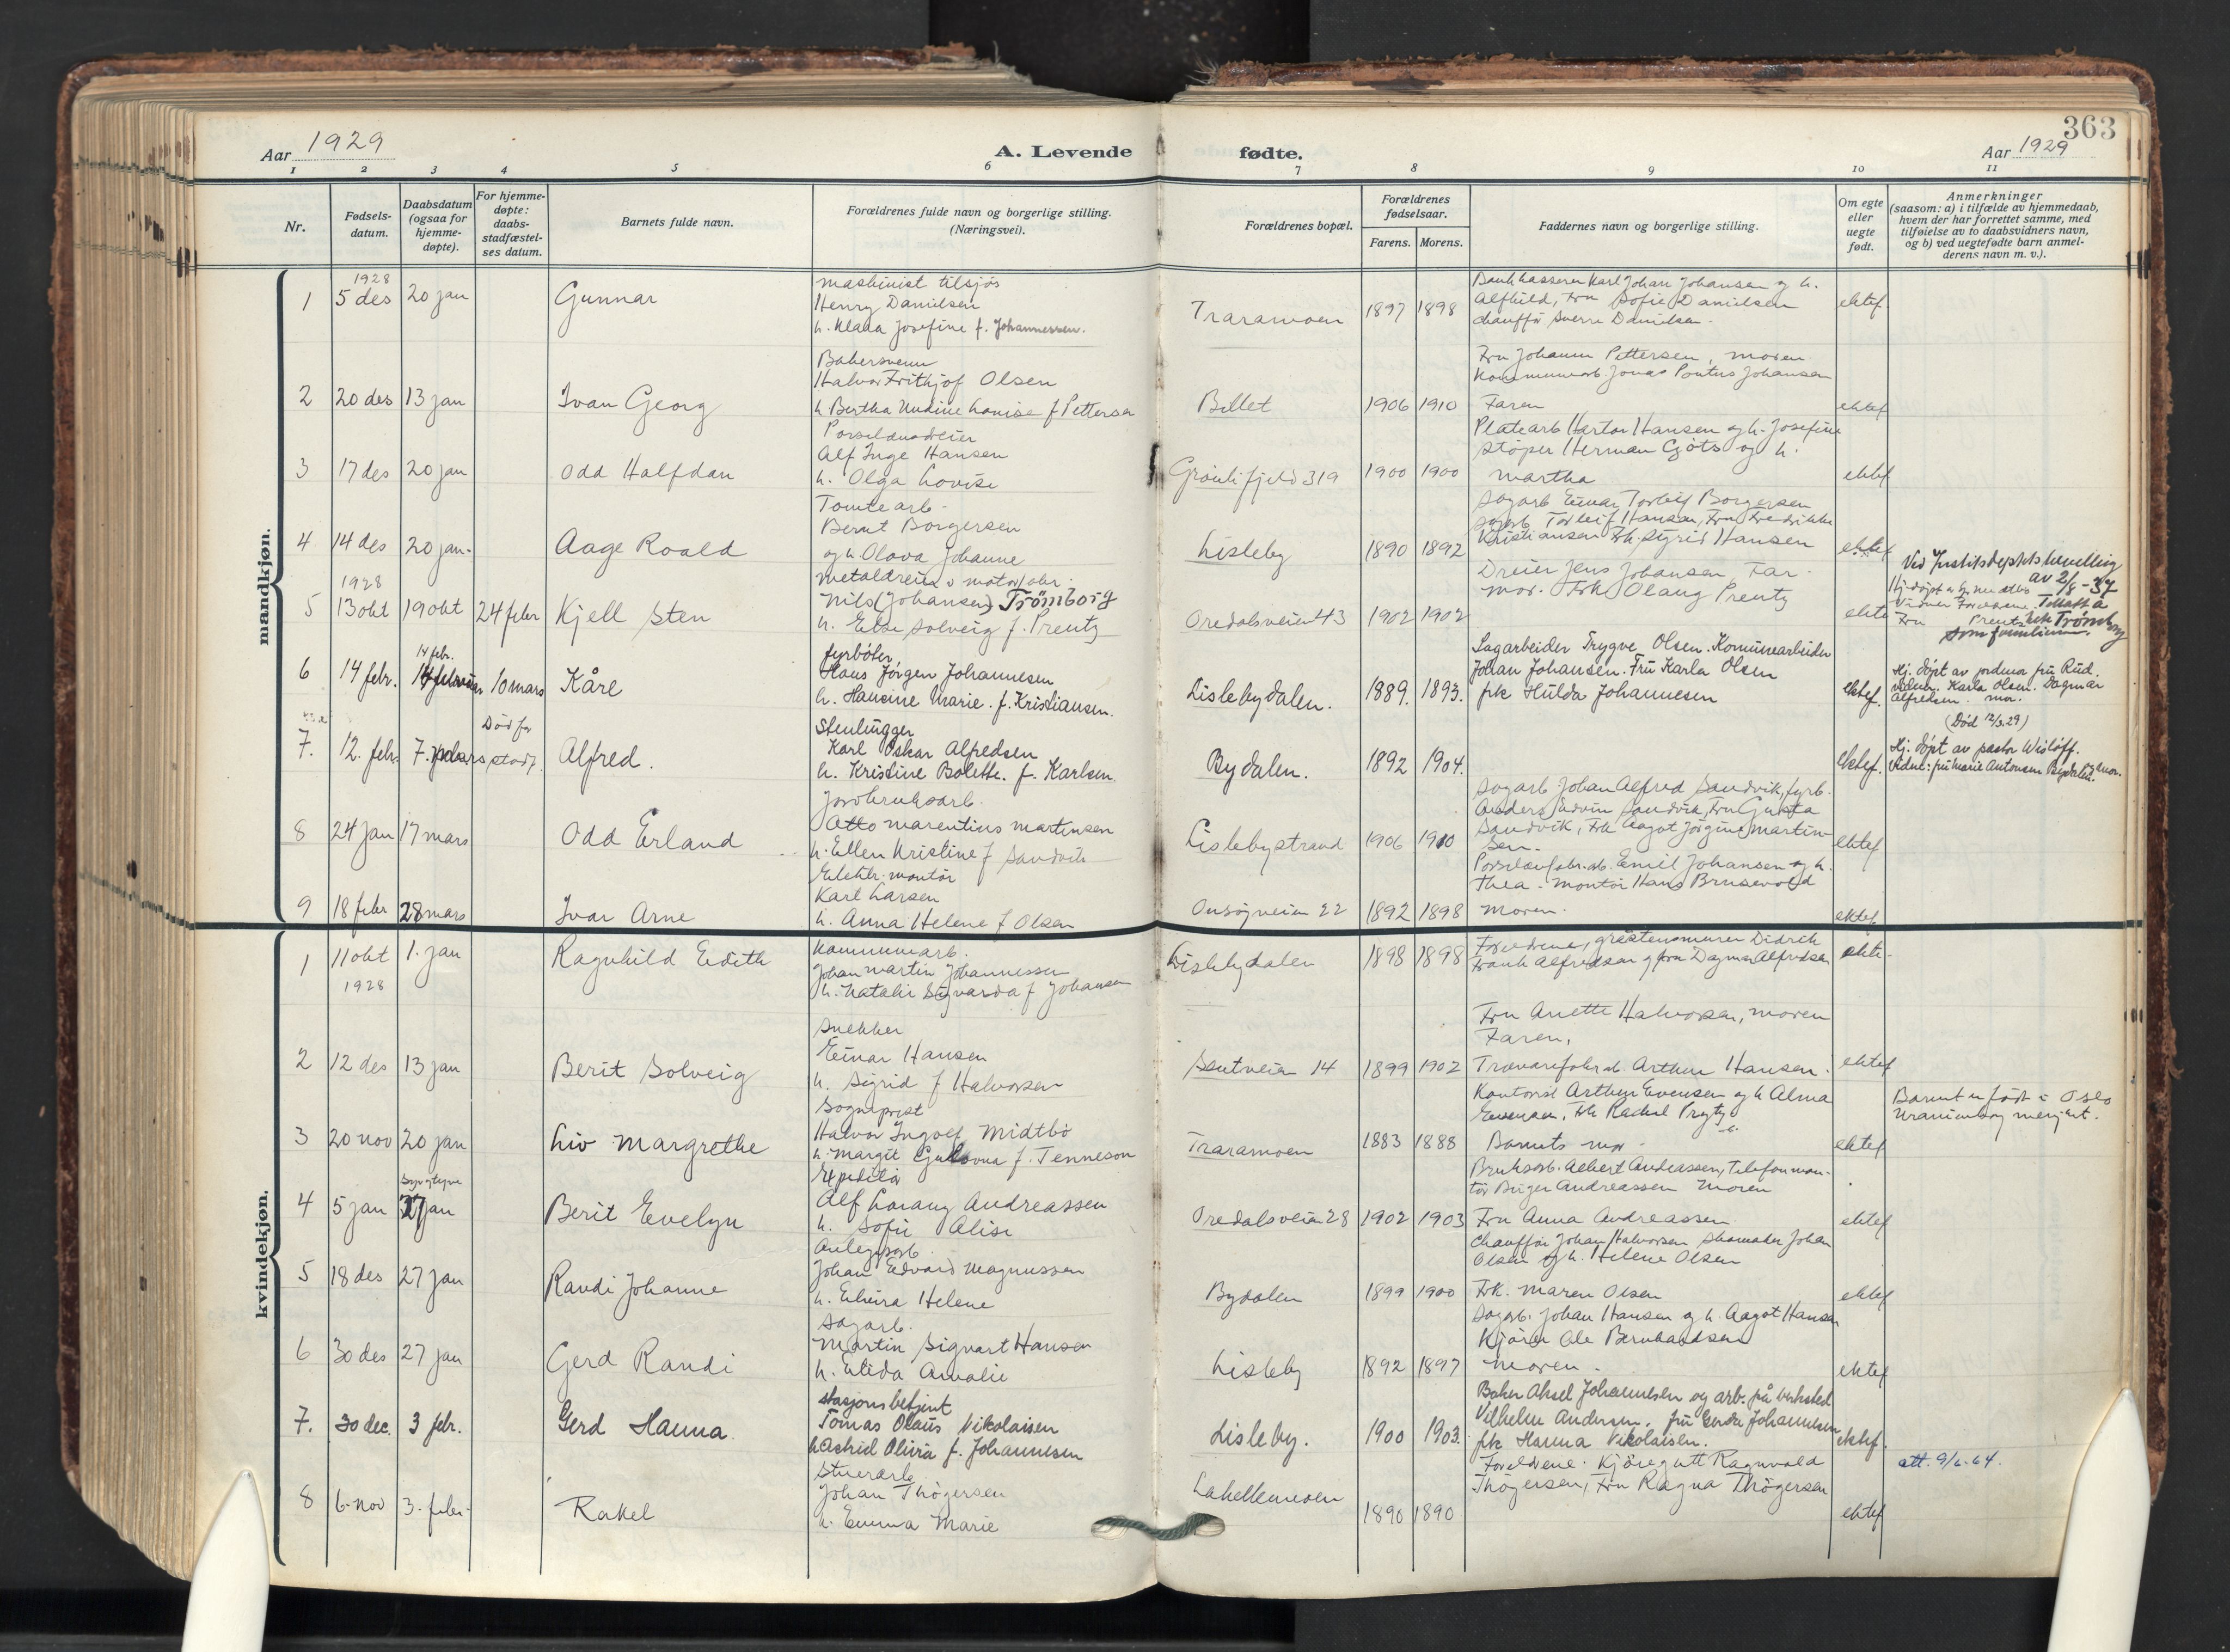 363
Aar 1929
A. Levende fødte.
Aar 1929
1 2 3 4 5 6 7 8 9 10 11
Nr.
Fødsels-
datum.
Daabsdatum
(ogsaa for
hjemme-
døpte).
For hjemme-
døpte:
daabs-
stadfæstel-
ses datum.
Barnets fulde navn.
Forældrenes fulde navn og borgerlige stilling.
(Næringsvei).
Forældrenes bopæl.
Forældrenes
fødselsaar.
Farens. Morens.
Faddernes navn og borgerlige stilling.
Om egte
eller
uegte
født.
Anmerkninger
(saasom: a) i tilfælde av hjemmedaab,
hvem der har forrettet samme, med
tilføielse av to daabsvidners navn,
og b) ved uegtefødte barn anmel-
derens navn m. v.).
mandkjøn.
1928
1 5 des 20 jan Gunnar
maskinist tilsjøs
Henry Danielsen
h. Klara Josefine f. Johannessen.
Traramoen 1897 1898
Bankkasserer Karl Johan Johansen og h.
Alfhild, Fru Sofie Danielsen
chauffør Sverre Danielsen
ektef
2 20 des 13 jan Ivan Georg
Bakersvenn
Halvor Frithjof Olsen
h Bertha Undine Lovise f Pettersen
Billet 1906 1910
Fru Johanne Pettersen, moren
Kommunearb. Jonas Pontus Johansen
Faren
ektef
3 17 des 20 jan Odd Halfdan
Porselensdreier
Alf Inge Hansen
h. Olga Lovise
Grønlifjeld 319 1900 1900
Platearb Hartar Hansen og h. Josefine
støper Herman Gjøts og h.
Martha
ektef
4 14 des 20 jan. Aage Roald
Tomtearb.
Bernt Borgersen
og h Olava Johanne
Lisleby 1890 1892
Sagarb Einar Torleif Borgersen
sagarb Torleif Hansen, Fru Fredrikke
Kristiansen Frk Sigrid Hansen
ektef
1928
5 13 okt 19 okt 24 febr Kjell Sten
Metaldreier v motorfabr.
Nils (Johansen) Trömborg
h. Else Solveig f. Prentz
Oredalsveien 43 1902 1902
Dreier Jens Johansen Far.
mor. Frk Olaug Prentz
ekte
Ved Justisdeptets bevilling
av 2/8 - 37
Fru Prentz
Trömborg
som familienavn.
14 febr.
6 14 febr. 14 februar 10 mars Kåre
fyrbøter
Hans Jørgen Johannesen
h. Hansine Marie. f. Kristiansen.
Lislebydalen. 1889. 1893.
Sagarbeider Trygve Olsen. Komunearbeider
Johan Johansen. Fru Karla Olsen
frk Hulda Johannesen
ektef.
Hj. døpt av jordmor fru Rud.
vidner. Karla Olsen. Dagmar
Alfredsen. mor.
Død før
stadf.
7. 12. febr. 7. mars Alfred.
Stenhugger
Karl Oskar Alfredsen
h. Kristine Bolette. f. Karlsen
Bydalen. 1892 1904.
ektef.
(Død 12/3.29)
Hj. døpt av pastor Wisløff.
Vidne: fru Marie Antonsen Bydalen. og mor.
8 24 jan 17 mars Odd Erland
Jordbruksarb.
Otto Marentius Martinsen
h. Ellen Kristine f Sandvik
Lislebystrand 1906 1910
Sagarb. Johan Alfred Sandvik, fyrb.
Anders Edvin Sandvik, Fru Gusta
Sandvik, Frk Aagot Jørgine Martin-
sen.
ektef
9 18 febr 28 mars Ivar Arne
Elektr. montør
Karl Larsen
h. Anna Helene f Olsen
Onsøyveien 22 1892 1898
Porselænfabr.arb. Emil Johansen og h.
Thea. Montør Hans Brusevold
moren.
ektef.
kvindekjøn.
1 11 okt 1. jan Ragnhild Edith
1928
Kommunearb.
Johan Martin Johannessen
h. Natalie Sigvarda f Johansen
Lislebydalen 1898 1898
Foreldrene, gråstensmurer Didrik
Frank Alfredsen og fru Dagmar Alfredsen
ekte.
2 12 des 13 jan Berit Solveig
Snekker
Einar Hansen
h. Sigrid f Halvorsen
Sentveien 14 1899 1902
Fru Anette Halvorsen, moren
Faren,
Trævarefabr.arb. Arthur Hansen.
ektef
3 20 nov 20 jan Liv Margrethe
Sogneprest
Halvor Ingolf Midtbö
h. Margit Gulovna f. Tenneson
Traramoen 1883 1888
Kontorist Arthur Evensen og h Alma
Evensen, Frk Rachel Prytz
Barnets mor.
ektef
Barnet er født i Oslo
Uranienborg menighet.
syvogtyve
4 5 jan 27 jan Berit Evelyn
Expeditør
Alf Lorang Andreassen
h. Sofie Alise
Oredalsveien 28 1902 1903
Bruksarb. Albert Andreassen, Telefonmon-
tør Birger Andreassen Moren
Fru Anna Andreassen
ektef
5 18 des 27 jan Randi Johanne
Anlegsarb
Johan Edvard Magnussen
h. Elvira Helene
Bydalen 1899 1900
Chauffør Johan Halvorsen Skomaker Johan
Olsen og h. Helene Olsen
Frk. Maren Olsen
ektef
6 30 des 27 jan Gerd Randi
Sagarb.
Martin Sigvart Hansen
h. Elida Amalie
Lisleby 1892 1897
Sagarb. Johan Hansen og h. Aagot Hansen
Kjører Ole Bernhardsen
Moren.
ektef
7. 30 dec. 3 febr. Gerd Hanna.
stasjonsbetjent
Tomas Olaus Nikolaisen
h Astrid Olivia f. Johannesen
Lisleby. 1900 1903.
Baker Aksel Johannesen og arb. på verksted
Vilhelm Andersen. fru Gerda Johannesen
frk Hanna Nikolaisen.
ektef.
att. 9/6-64.
8 6. nov 3. febr. Rakel
Stuerarb.
Johan Thøgersen
h. Emma Marie
Lahellemoen 1890 1890
Foreldrene. Kjøregutt Ragnvald
Thøgersen, Fru Ragna Thøgersen
ektef